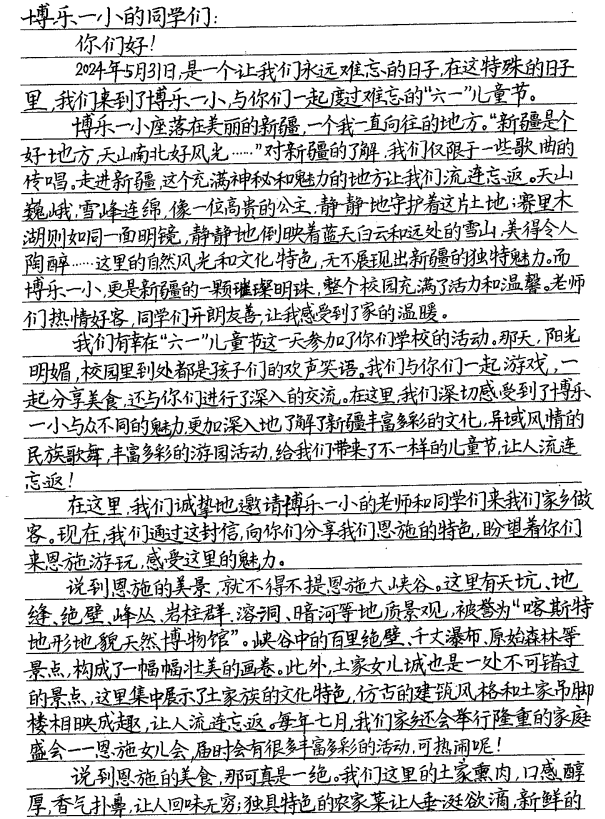 博乐一小的同学们:
你们好!
2024年5月31日,是一个让我们永远难忘的日子,在这特殊的日子
里,我们来到了博乐一小,与你们一起度过难忘的“六一”儿童节。
博乐一小座落在美丽的新疆,一个我一直向往的地方。“新疆是个
好地方,天山南北好风光……”对新疆的了解,我们仅限于一些歌曲的
传唱。走进新疆,这个充满神秘和魅力的地方让我们流连忘返。天山
巍峨,雪峰连绵,像一位高贵的公主,静静地守护着这片土地;赛里木
湖则如同一面明镜,静静地倒映着蓝天白云和远处的雪山,美得令人
陶醉……这里的自然风光和文化特色,无不展现出新疆的独特魅力。而
博乐一小,更是新疆的一颗璀璨明珠,整个校园充满了活力和温馨。老师
们热情好客,同学们开朗友善,让我感受到了家的温暖。
我们有幸在“六一”儿童节这一天参加了你们学校的活动。那天,阳光
明媚,校园里到处都是孩子们的欢声笑语。我们与你们一起游戏,一
起分享美食,还与你们进行了深入的交流。在这里,我们深切感受到了博乐
一小与众不同的魅力,更加深入地了解了新疆丰富多彩的文化,异域风情的
民族歌舞,丰富多彩的游园活动,给我们带来了不一样的儿童节,让人流连
忘返!
在这里,我们诚挚地邀请博乐一小的老师和同学们来我们家乡做
客。现在,我们通过这封信,向你们分享我们恩施的特色,盼望着你们
来恩施游玩,感受这里的魅力。
说到恩施的美景,就不得不提恩施大峡谷。这里有天坑、地
缝、绝壁、峰丛、岩柱群、溶洞、暗河等地质景观,被誉为“喀斯特
地形地貌天然博物馆”。峡谷中的百里绝壁、千丈瀑布、原始森林等
景点,构成了一幅幅壮美的画卷。此外,土家女儿城也是一处不可错过
的景点,这里集中展示了土家族的文化特色,仿古的建筑风格和土家吊脚
楼相映成趣,让人流连忘返。每年七月,我们家乡还会举行隆重的家庭
盛会——恩施女儿会,届时会有很多丰富多彩的活动,可热闹呢!
说到恩施的美食,那可真是一绝。我们这里的土家熏肉,口感醇
厚,香气扑鼻,让人回味无穷;独具特色的农家菜让人垂涎欲滴,新鲜的